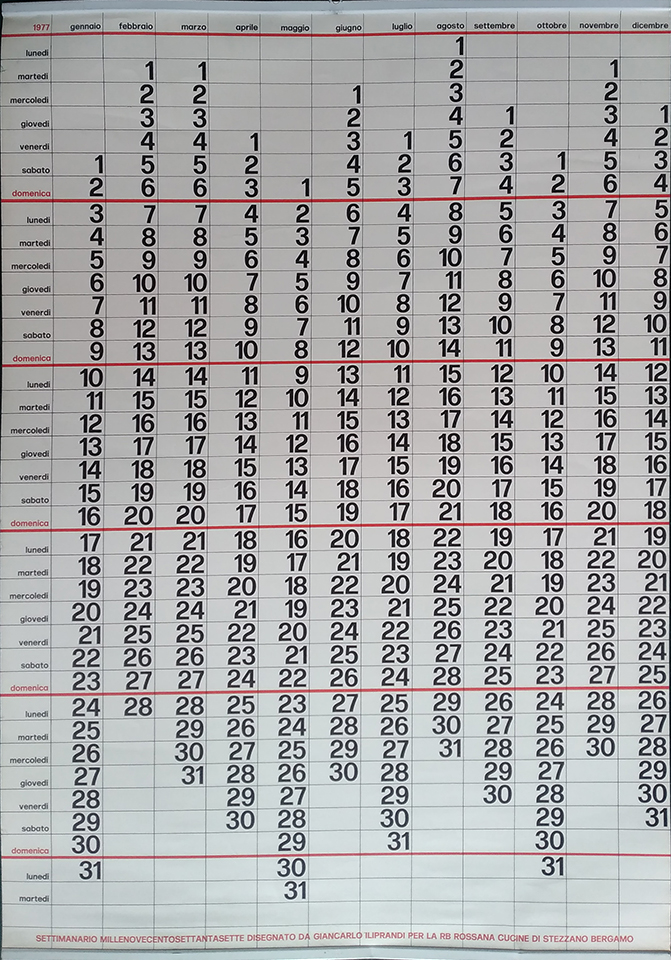 1977 gennaio febbraio marzo aprile maggio giugno luglio agosto settembre ottobre novembre dicembre
lunedì 1
martedì 1 1 2 1
mercoledì 2 2 1 3 2
giovedì 3 3 2 4 1 3 1
venerdì 4 4 1 3 1 5 2 4 2
sabato 1 5 5 2 4 2 6 3 1 5 3
domenica 2 6 6 3 1 5 3 7 4 2 6 4
lunedì 3 7 7 4 2 6 4 8 5 3 7 5
martedì 4 8 8 5 3 7 5 9 6 4 8 6
mercoledì 5 9 9 6 4 8 6 10 7 5 9 7
giovedì 6 10 10 7 5 9 7 11 8 6 10 8
venerdì 7 11 11 8 6 10 8 12 9 7 11 9
sabato 8 12 12 9 7 11 9 13 10 8 12 10
domenica 9 13 13 10 8 12 10 14 11 9 13 11
lunedì 10 14 14 11 9 13 11 15 12 10 14 12
martedì 11 15 15 12 10 14 12 16 13 11 15 13
mercoledì 12 16 16 13 11 15 13 17 14 12 16 14
giovedì 13 17 17 14 12 16 14 18 15 13 17 15
venerdì 14 18 18 15 13 17 15 19 16 14 18 16
sabato 15 19 19 16 14 18 16 20 17 15 19 17
domenica 16 20 20 17 15 19 17 21 18 16 20 18
lunedì 17 21 21 18 16 20 18 22 19 17 21 19
martedì 18 22 22 19 17 21 19 23 20 18 22 20
mercoledì 19 23 23 20 18 22 20 24 21 19 23 21
giovedì 20 24 24 21 19 23 21 25 22 20 24 22
venerdì 21 25 25 22 20 24 22 26 23 21 25 23
sabato 22 26 26 23 21 25 23 27 24 22 26 24
domenica 23 27 27 24 22 26 24 28 25 23 27 25
lunedì 24 28 28 25 23 27 25 29 26 24 28 26
martedì 25 29 26 24 28 26 30 27 25 29 27
mercoledì 26 30 27 25 29 27 31 28 26 30 28
giovedì 27 31 28 26 30 28 29 27 29
venerdì 28 29 27 29 30 28 30
sabato 29 30 28 30 29 31
domenica 30 29 31 30
lunedì 31 30 31
martedì 31
SETTIMANARIO MILLENOVECENTOSETTANTASETTE DISEGNATO DA GIANCARLO ILIPRANDI PER LA RB ROSSANA CUCINE DI STEZZANO BERGAMO